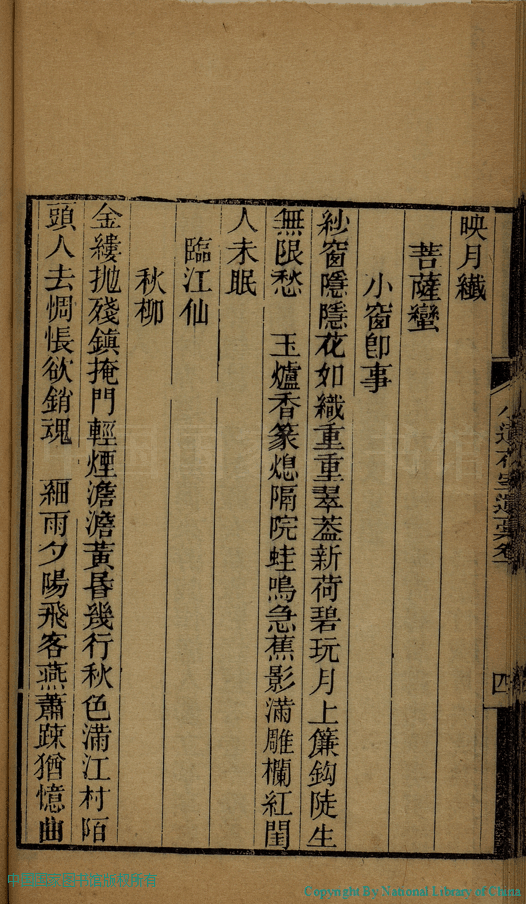 映月纖
菩薩蠻
小窗卽事
紗窗隱隱花如織重重翠葢新荷碧玩月上簾鈎陡生
無限愁　玉爐香篆熄隔院蛙鳴急蕉影滿雕欄紅閨
人未眠
臨江仙
秋柳
金縷拋殘鎮掩門輕煙澹澹黃昏幾行秋色滿江村陌
頭人去惆悵欲銷魂　細雨夕陽飛客燕蕭疎猶憶曲
四
中國国家图书馆
Copyright By National Library of China